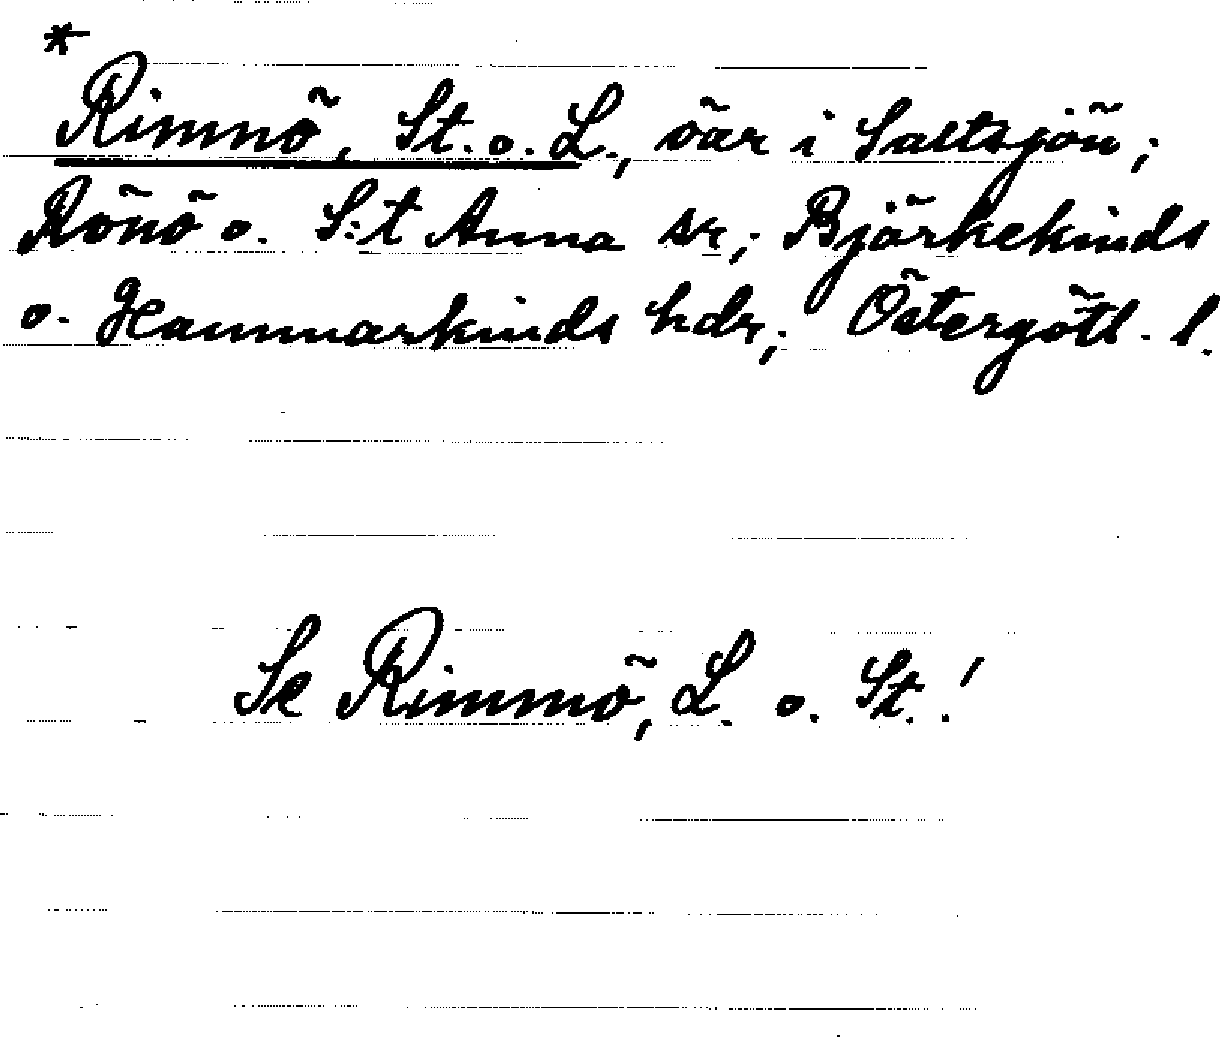 *
Rimmö, St. o. L., öar i Saltsjön;
Rönö o. S:t Anna sr,; Björkekinds
o. Hammarkinds hdr,; Östergötl. l.
Se Rimmö, L. o. St.!